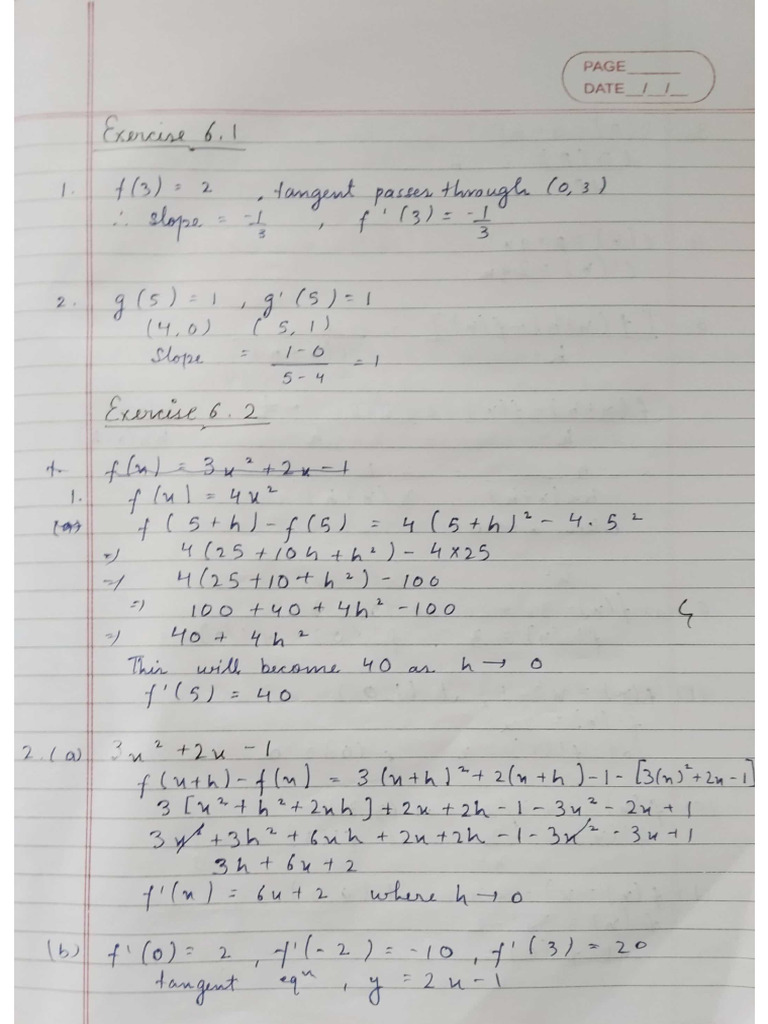 PAGE
DATE / /
Exercise 6.1
1. f(3) = 2 , tangent passes through (0,3)
∴ slope = -1/3 , f'(3) = -1/3
2. g(5) = 1 , g'(5) = 1
(4,0) (5,1)
Slope = 1-0/5-4 = 1
Exercise 6.2
1. f(x) = 3x² + 2x - 1
1. f(x) = 4x²
(a) f(5+h) - f(5) = 4(5+h)² - 4.5²
=) 4(25+10h+h²) - 4×25
=) 4(25+10+h²) - 100
=) 100 + 40 + 4h² - 100
=) 40 + 4h²
This will become 40 as h → 0
f'(5) = 40
2.(a) 3x² + 2x - 1
f(x+h) - f(x) = 3(x+h)² + 2(x+h) - 1 - [3(x)² + 2x - 1]
3[x² + h² + 2xh] + 2x + 2h - 1 - 3x² - 2x + 1
3x² + 3h² + 6xh + 2x + 2h - 1 - 3x² - 3x + 1
3h + 6x + 2
f'(x) = 6x + 2 where h → 0
(b) f'(0) = 2 , f'(-2) = -10 , f'(3) = 20
tangent eqⁿ , y = 2x - 1